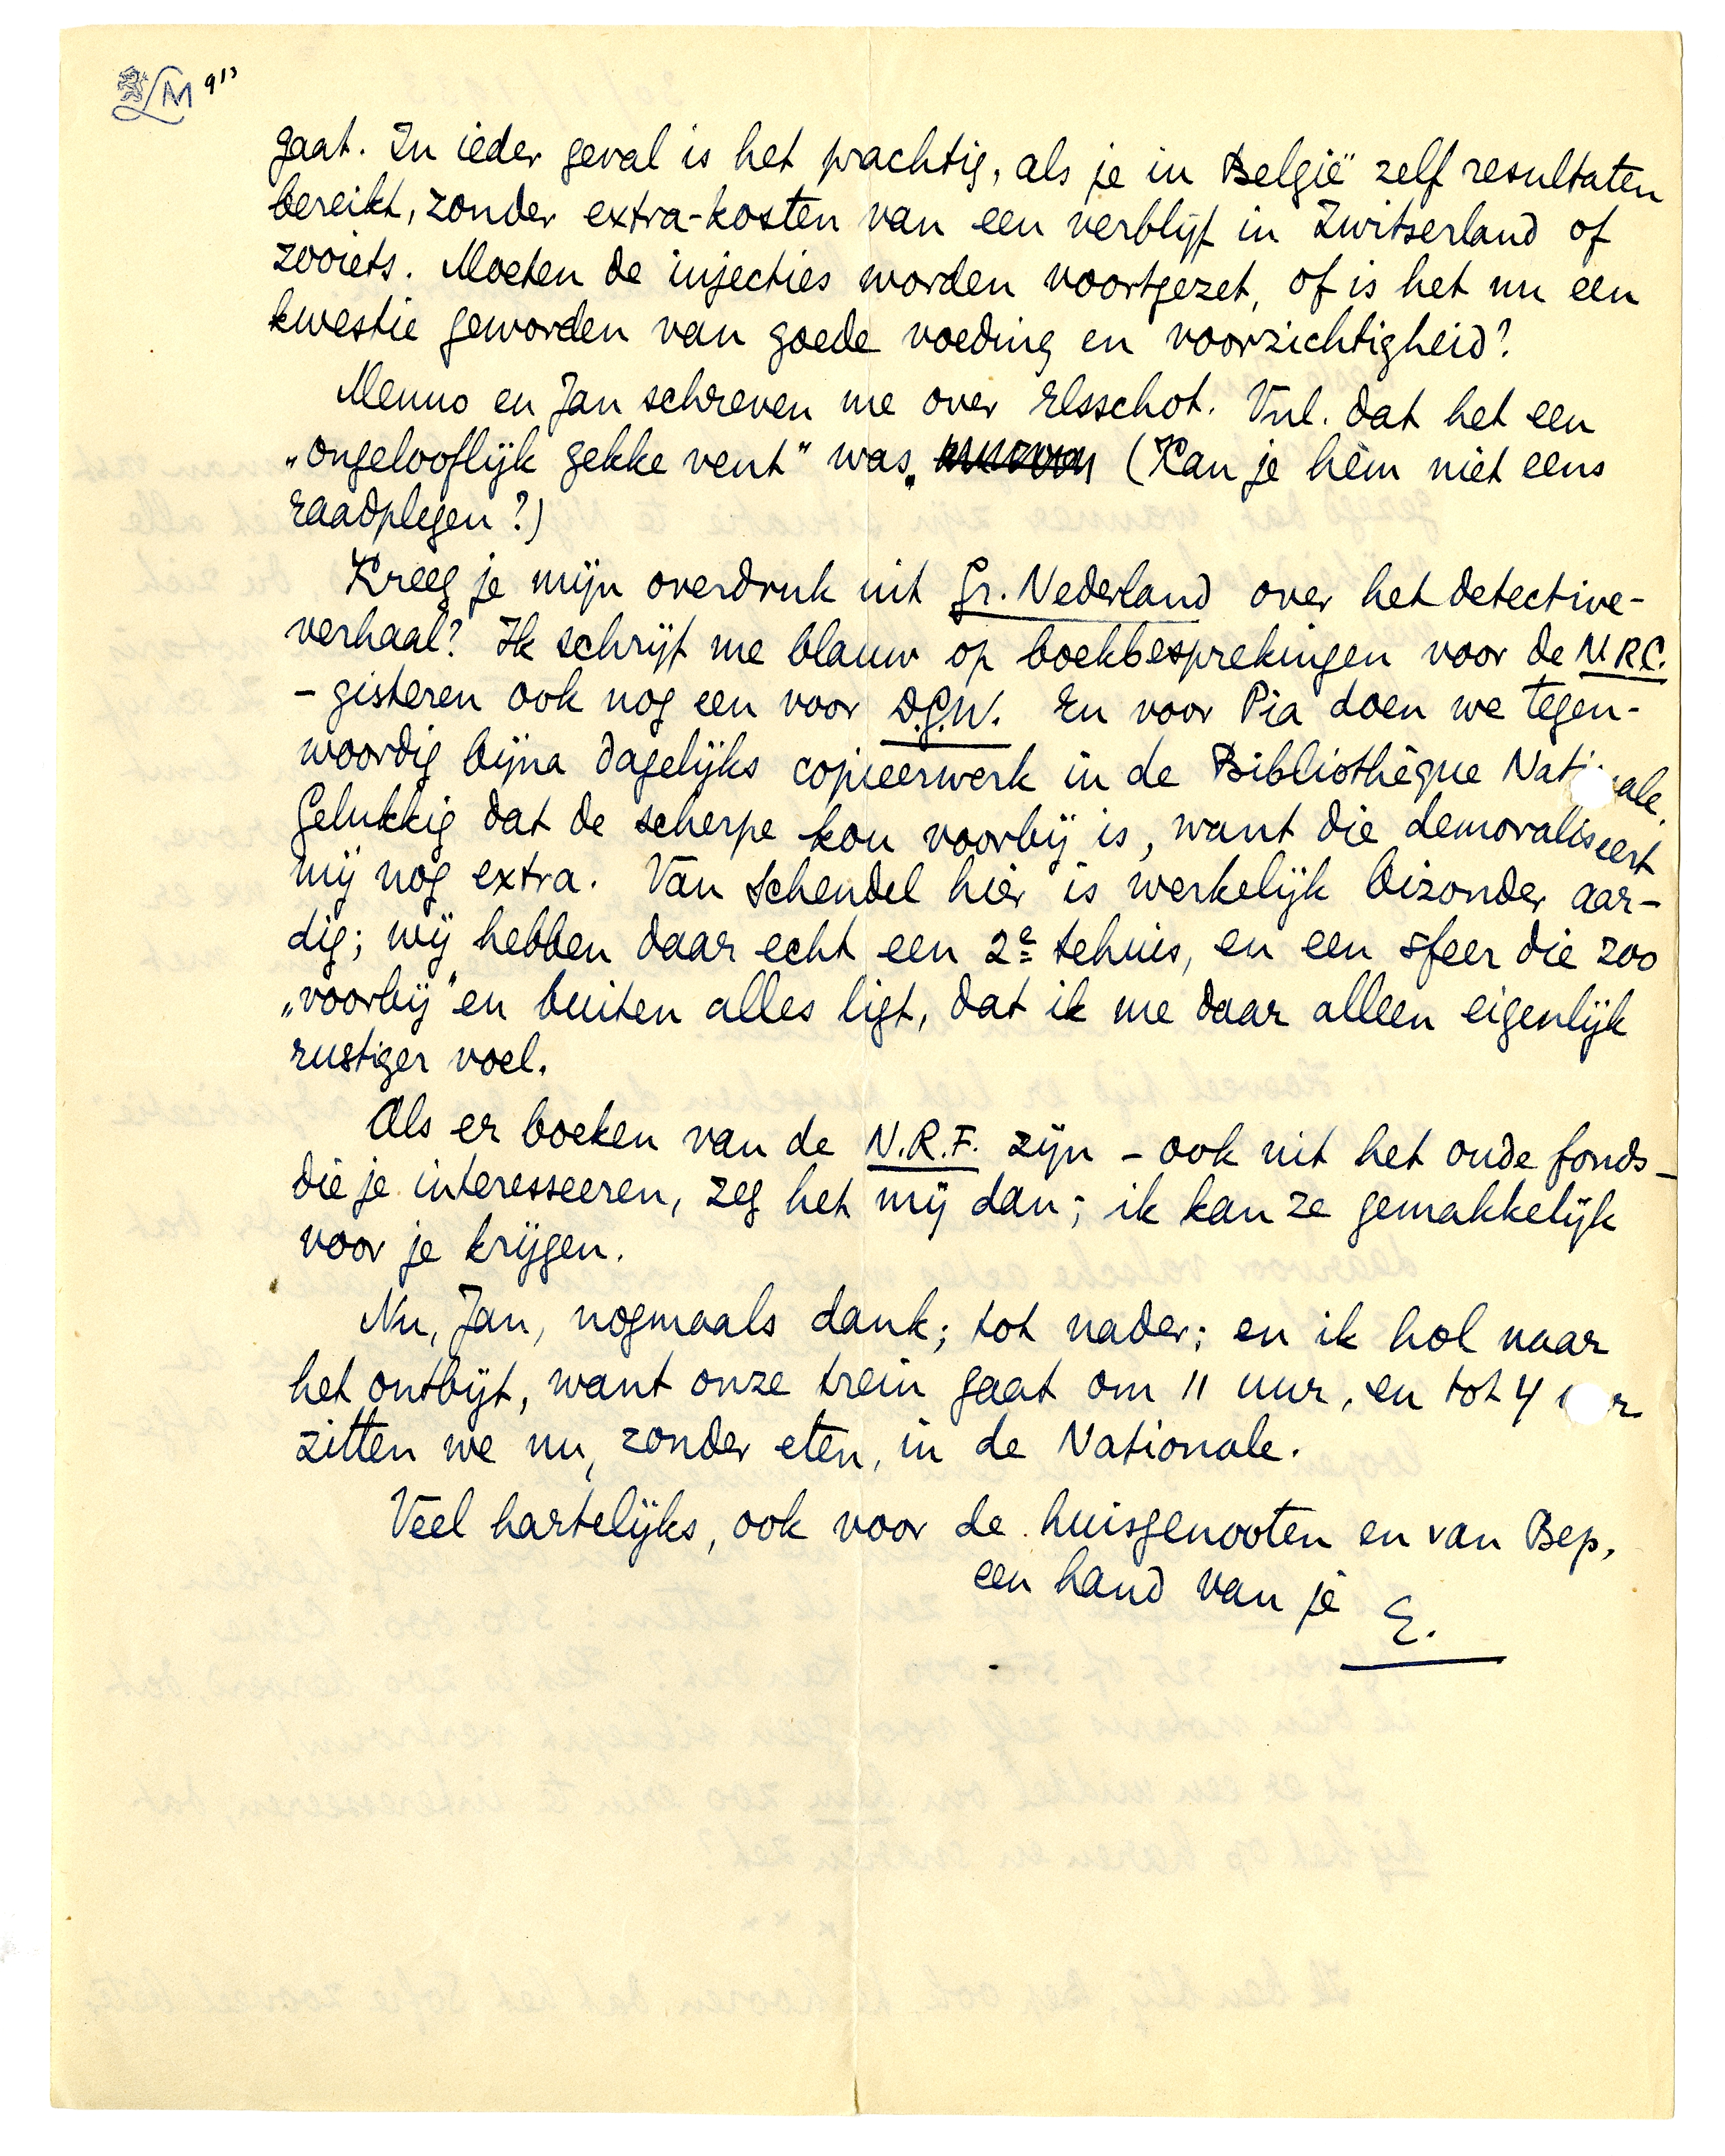 LM 913
gaat. In ieder geval is het prachtig, als je in België zelf resultaten
bereikt, zonder extra-kosten van een verblijf in Zwitserland of
zooiets. Moeten de injecties worden voortgezet, of is het nu een
kwestie geworden van goede voeding en voorzichtigheid?
Menno en Jan schreven me over Elsschot. Vnl. dat het een
„ongelooflijk gekke vent" was. (Kan je hèm niet eens
raadplegen?)
Kreeg je mijn overdruk uit Gr. Nederland over het detective-
verhaal? Ik schrijf me blauw op boekbesprekingen voor de N.R.C.
- gisteren ook nog een voor D.G.W. En voor Pia doen we tegen-
woordig bijna dagelijks copieerwerk in de Bibliothèque Nationale.
Gelukkig dat de scherpe kou voorbij is, want die demoraliseert
mij nog extra. Van Schendel hier is werkelijk bizonder aar-
dig; wij hebben daar echt een 2e tehuis, en een sfeer die zoo
„voorbij" en buiten alles ligt, dat ik me daar alleen eigenlijk
rustiger voel.
Als er boeken van de N.R.F. zijn - ook uit het oude fonds -
die je interesseeren, zeg het mij dan; ik kan ze gemakkelijk
voor je krijgen.
Nu, Jan, nogmaals dank; tot nader; en ik hol naar
het ontbijt, want onze trein gaat om 11 uur, en tot 4 uur
zitten we nu, zonder eten, in de Nationale.
Veel hartelijks, ook voor de huisgenooten en van Bep,
een hand van je E.